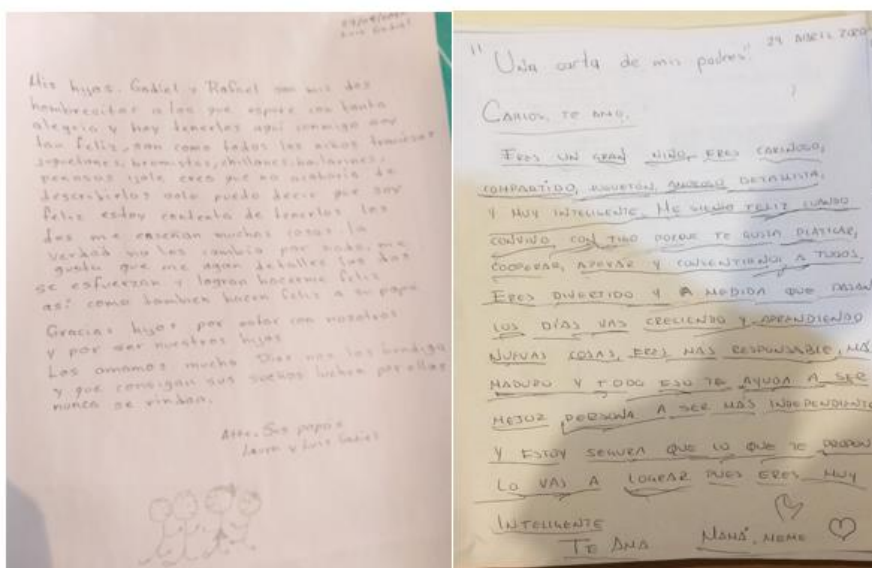 Luis Gadiel
Mis hijos. Gadiel y Rafael son mis dos
hombrecitos a los que espere con tanta
alegria y hoy tenerlos aqui conmigo soy
tan feliz, son como todos los niños traviesos
juguetones, bromistas, chillones, bailarines,
penosos creo que no acabaria de
describirlos solo puedo decir que soy
feliz estoy contenta de tenerlos los
dos me enseñan muchas cosas la
verdad no los cambio por nada, me
gusta que me agan detalles los dos
se esfuerzan y logran hacerme feliz
así como tambien hacen feliz a su papá
Gracias hijos por estar con nosotros
y por ser nuestros hijos
Los amamos mucho Dios nos los bendiga
y que consigan sus sueños luchen por ellos
nunca se rindan.
Atte. Sus papás
Laura y Luis Gadiel
"Una carta de mis padres". 29 ABRIL
TE AMO.
ERES UN GRAN NIÑO, ERES CARIÑOSO,
COMPARTIDO, JUGUETÓN, AMOROSO DETALLISTA,
Y MUY INTELIGENTE. ME SIENTO FELIZ CUANDO
CONVIVO CON TIGO PORQUE TE GUSTA PLATICAR,
COOPERAR, APOYAR Y CONSENTIRNOS A TODOS.
ERES DIVERTIDO Y A MEDIDA QUE PASAN
LOS DÍAS VAS CRECIENDO Y APRENDIENDO
NUEVAS COSAS, ERES MAS RESPONSABLE, MÁ
MADURO Y TODO ESO TE AYUDA A SER
MEJOR PERSONA A SER MÁS INDEPENDIENTE
Y ESTOY SEGURA QUE LO QUE TE PROPON
LO VAS A LOGRAR PUES ERES MUY
INTELIGENTE
TE AMA MAMÁ, MEME